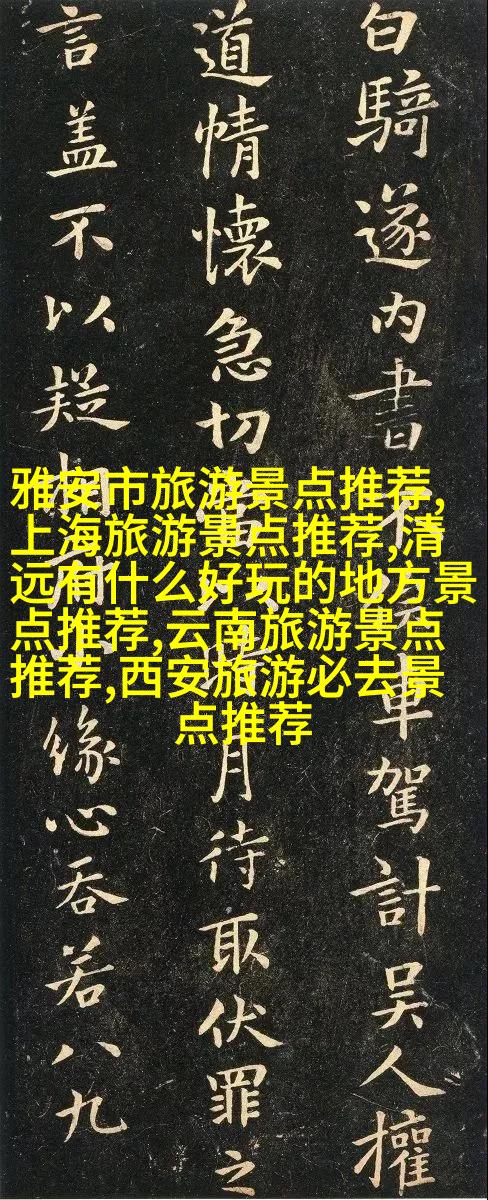 雅安市旅游景点推荐,
上海旅游景点推荐,清
远有什么好玩的地方景
点推荐,云南旅游景点
推荐,西安旅游必去景
点推荐
白騎遂内書車駕計吳人權
道情懷急切月待取伏罪之
言蓋不以疑緣心吞若八九